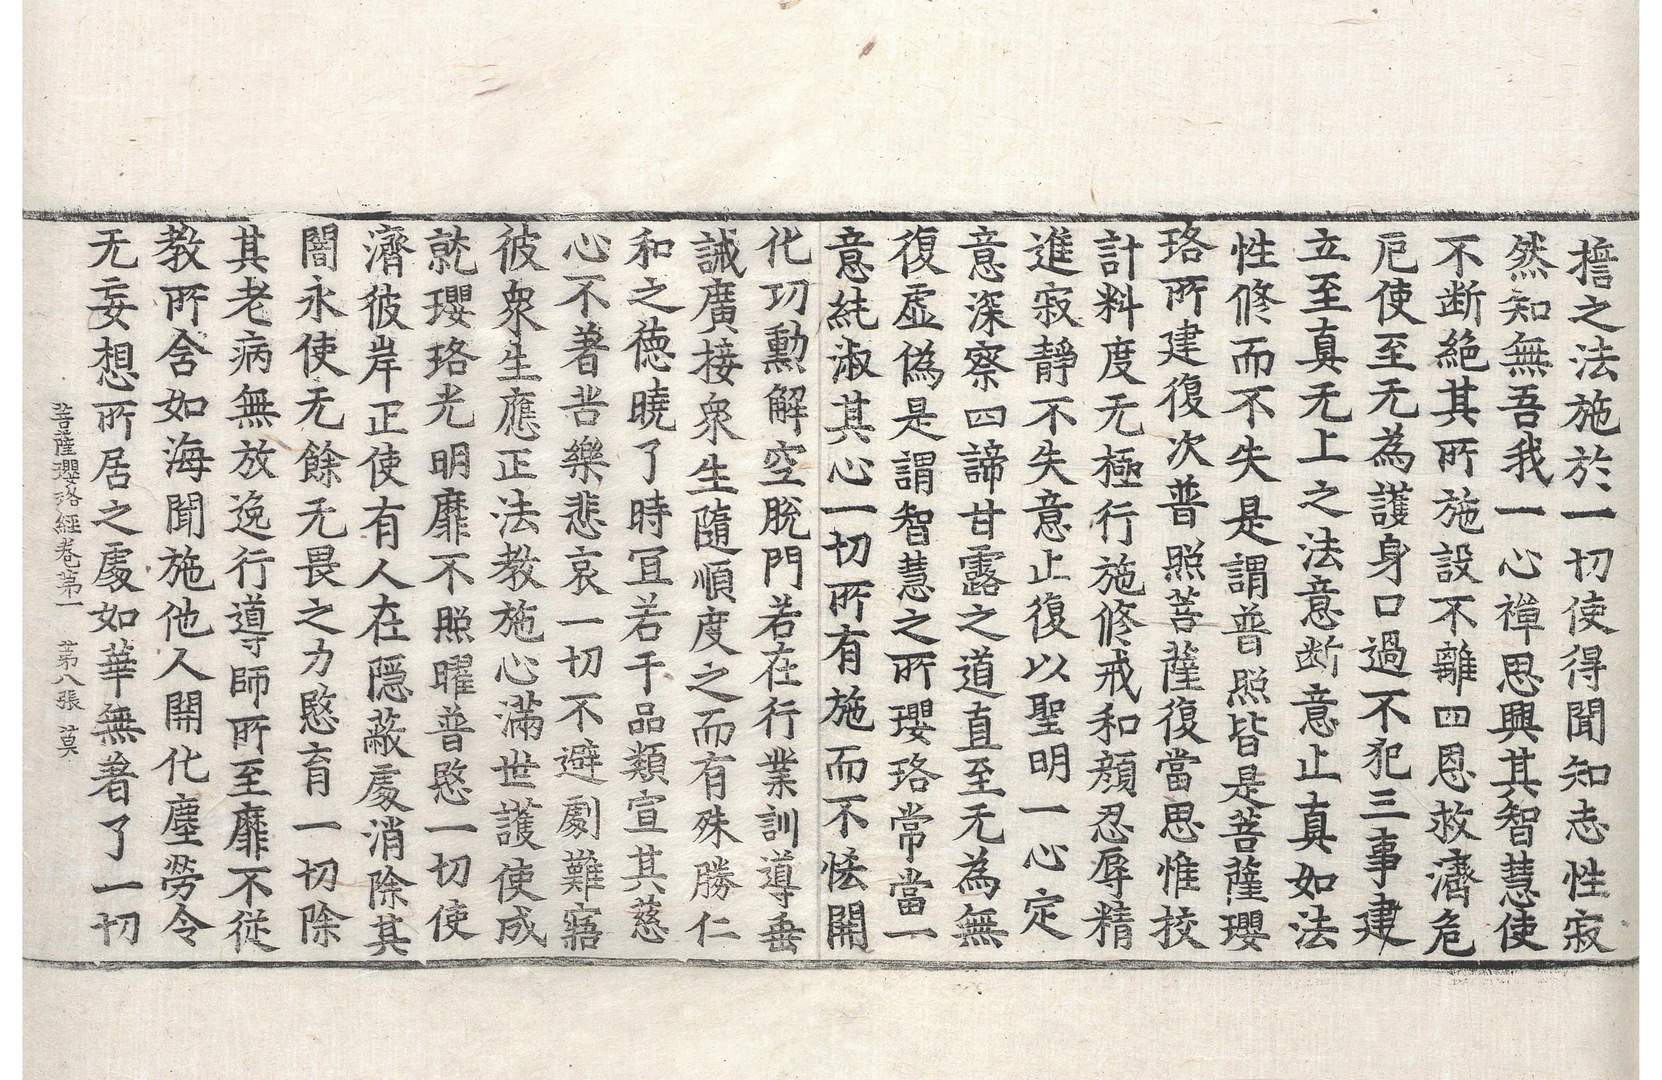 擔之法施於一切使得聞知志性寂
然知無吾我一心禪思興其智慧使
不断絶其所施設不離四恩救濟危
厄使至无為護身口過不犯三事建
立至真无上之法意断意止真如法
性修而不失是謂普照皆是菩薩瓔
珞所建復次普照菩薩復當思惟挍
計料度无極行施修戒和顔忍辱精
進寂靜不失意止復以聖明一心定
意深察四諦甘露之道直至无為無
復虚偽是謂智慧之所瓔珞常當一
意純淑其心一切所有施而不恡開
化㓛勳解空脫門若在行業訓導垂
誡廣接衆生隨順度之而有殊勝仁
和之德曉了時冝若干品類宣其慈
心不著苦樂悲哀一切不避劇難寤
彼衆生應正法教施心滿世護使成
就瓔珞光明靡不照曜普愍一切使
濟彼岸正使有人在隱蔽處消除其
闇永使无餘无畏之力愍育一切除
其老病無放逸行導師所至靡不從
教所含如海聞施他人開化塵勞令
无妄想所居之處如華無著了一切
菩薩瓔珞經卷第一　第八張　莫